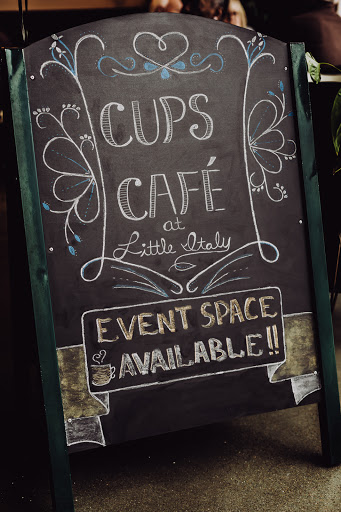 CUPS
CAFÉ
at
Little Italy
EVENT SPACE
AVAILABLE!!